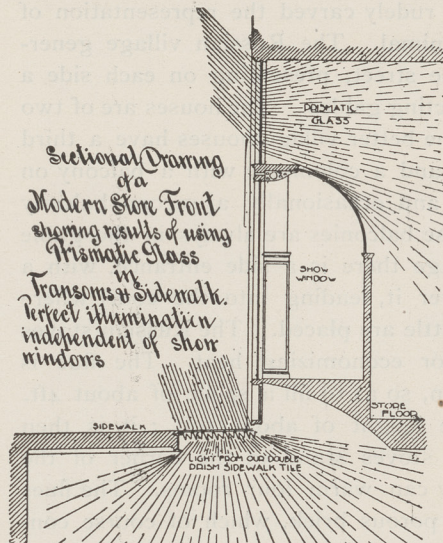 Sectional Drawing
of a
Modern Store Front
showing results of using
Prismatic Glass
in
Transoms & Sidewalk.
Perfect illumination
independent of show
windows
PRISMATIC
GLASS
SHOW
WINDOW
STORE
FLOOR
SIDEWALK
LIGHT FROM OUR DOUBLE
PRISM SIDEWALK TILE